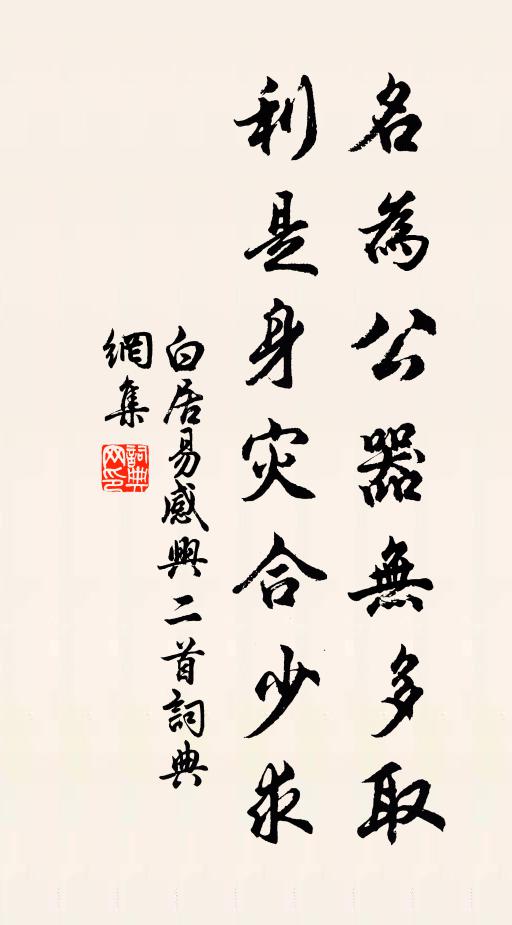 名為公器無多取
利是身灾合少求
白居易感興二首詞典
網集
詞典
网印